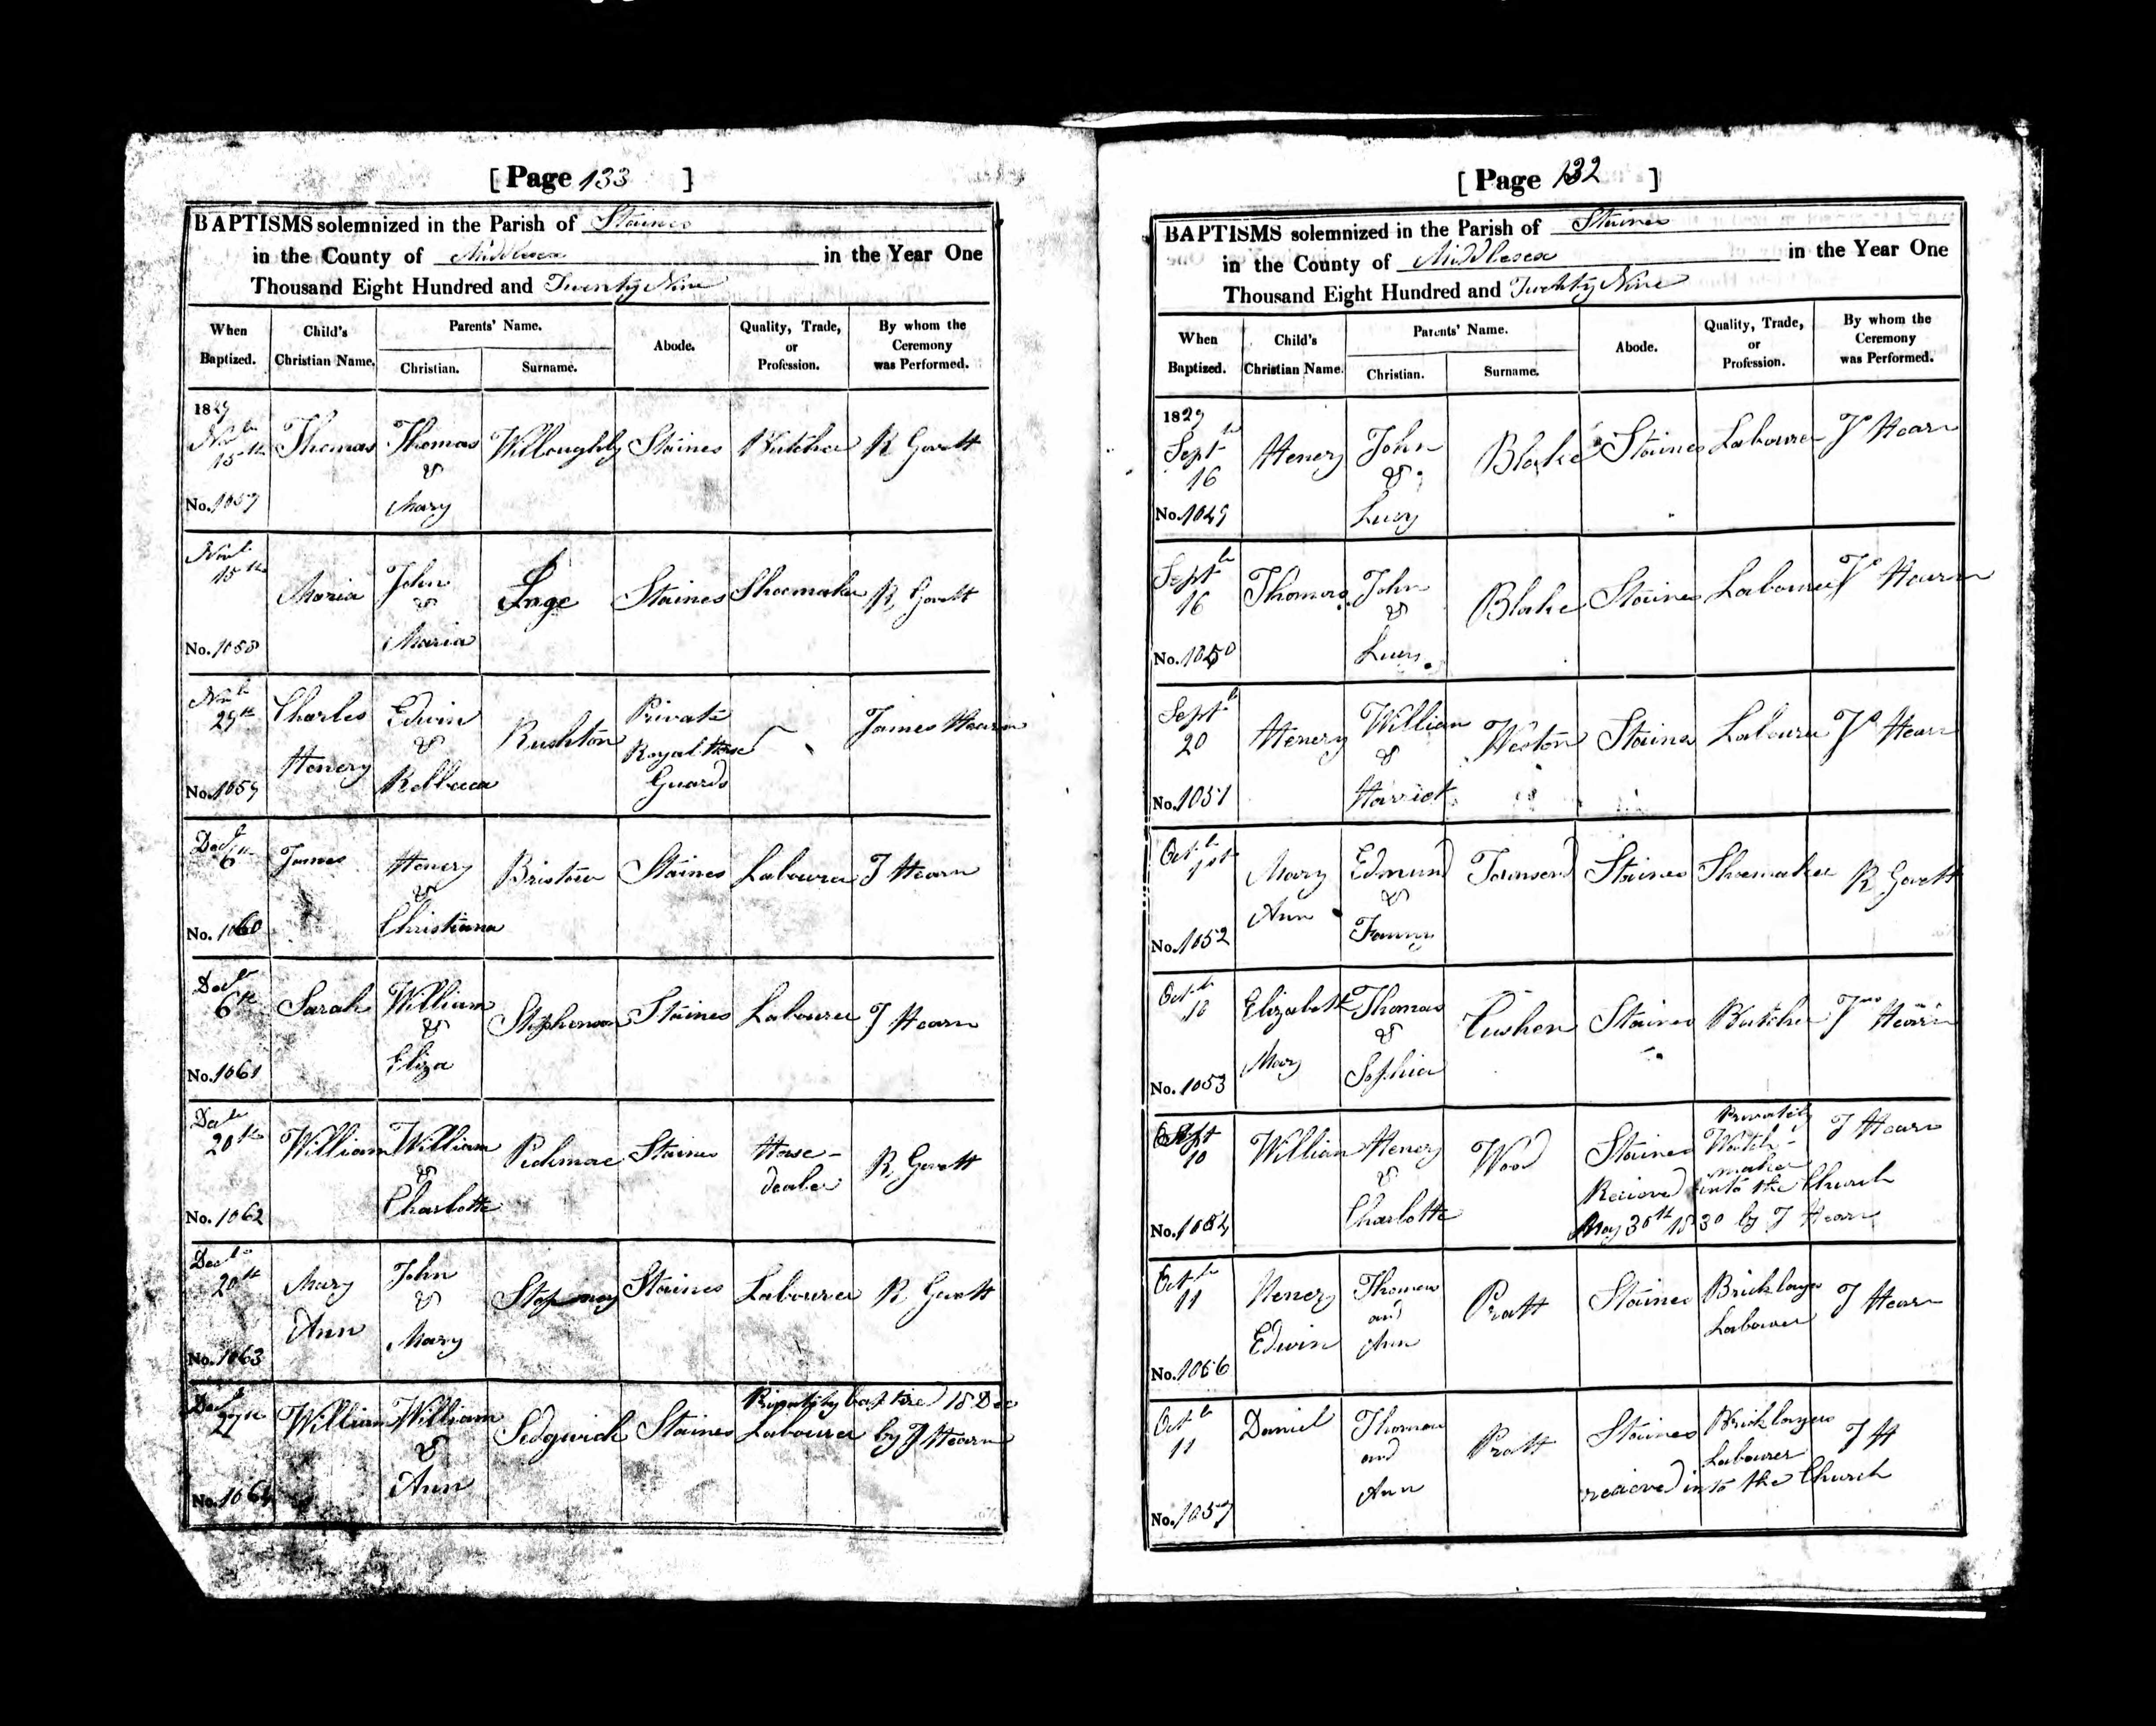 [ Page 133 ]
BAPTISMS solemnized in the Parish of Staines
in the County of Middlesex in the Year One
Thousand Eight Hundred and Twenty Nine
When Baptized. Child's Christian Name. Parents' Name. Christian. Surname. Abode. Quality, Trade, or Profession. By whom the Ceremony was Performed.
1829
15th Thomas Thomas Willoughby Staines Butcher R Govett
&
No. 1057 Mary
15th Maria John Page Staines Shoemaker R Govett
&
No. 1058 Maria
29th Charles Edwin Rushton Private James Hearn
Henery & Royal Horse
No. 1059 Rebbecca Guards
6th James Henery Bristow Staines Labourer J Hearn
&
No. 1060 Christiana
6th Sarah William Stephenson Staines Labourer J Hearn
&
No. 1061 Eliza
20th William William Staines Horse- R Govett
& dealer
No. 1062 Charlotte
20th Mary John Stepney Staines Labourer R Govett
Ann &
No. 1063 Mary
Privately baptized 18 Dec
27th William William Sedgwick Staines Labourer by J Hearn
&
No. 1064 Ann
[ Page 132 ]
BAPTISMS solemnized in the Parish of Staines
in the County of Middlesex in the Year One
Thousand Eight Hundred and Twenty Nine
When Baptized. Child's Christian Name. Parents' Name. Christian. Surname. Abode. Quality, Trade, or Profession. By whom the Ceremony was Performed.
1829
Septbr
16 Henery John Blake Staines Labourer Js Hearn
&
No. 1049 Lucy
Septbr
16 Thomas John Blake Staines Labourer Js Hearn
&
No. 1050 Lucy
Septbr
20 Henery William Weston Staines Labourer Js Hearn
&
No. 1051 Harriet
Octbr
1st Mary Edmund Townsend Staines Shoemaker R Govett
Ann &
No. 1052 Fanny
Octbr
Elizabeth Thomas Cushen Staines Butcher Jas Hearn
Mary &
No. 1053 Sophia
Privately
10 William Henery Wood Staines Watch- J Hearn
& maker
Recieved into the Church
No. 1054 Charlotte May 30th 1830 by J Hearn
Octbr
11 Henery Thomas Pratt Staines Bricklayers J Hearn
Edwin and Labourer
No. 1056 Ann
Octbr
11 Daniel Thomas Pratt Staines Bricklayers J H
and Labourer
Ann recieved into the Church
No. 1057